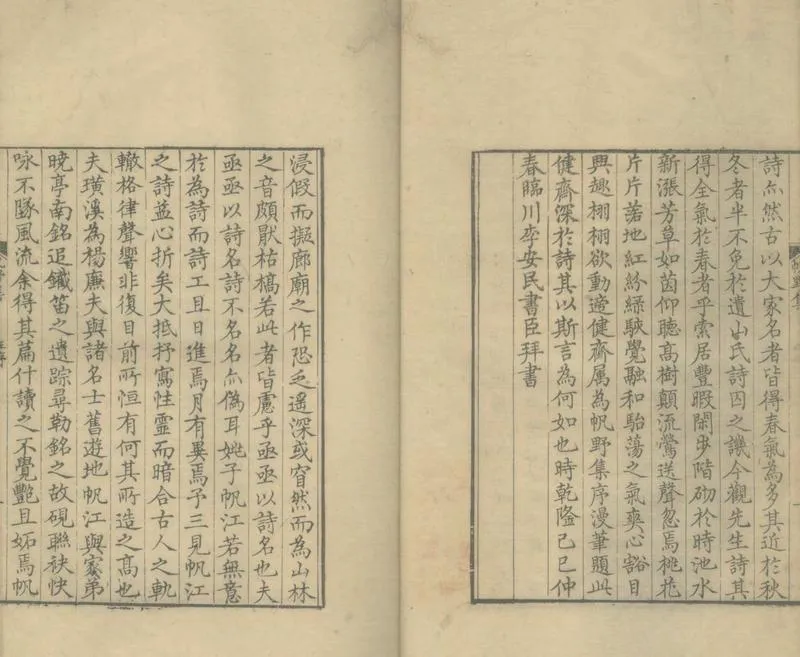 詩亦然古以大家名者皆得春氣為多其近於秋
冬者半不免於遺山氏詩囚之譏今觀先生詩其
得全氣於春者乎索居豐暇閑步階砌於時池水
新漲芳草如茵仰聽高樹顛流鶯送聲忽焉桃花
片片落地紅紛綠駛覺融和駘蕩之氣爽心豁目
興趣栩栩欲動適健齋属為帆野集序漫筆題此
健齋深於詩其以斯言為何如也時乾隆己巳仲
春臨川李安民書臣拜書
浸假而擬廊廟之作恐乏遥深或窅然而為山林
之音頗猒枯槁若此者皆慮乎亟亟以詩名也夫
亟亟以詩名詩不名名亦偽耳姚子帆江若無意
於為詩而詩工且日進焉月有異焉予三見帆江
之詩益心折矣大抵抒寫性靈而暗合古人之軌
轍格律聲響非復目前所恒有何其所造之高也
夫璜溪為楊廉夫與諸名士舊遊地帆江與家弟
曉亭南銘追鐵笛之遺踪尋勒銘之故硯聯袂快
咏不隊風流余得其篇什讀之不覺艷且妬焉帆